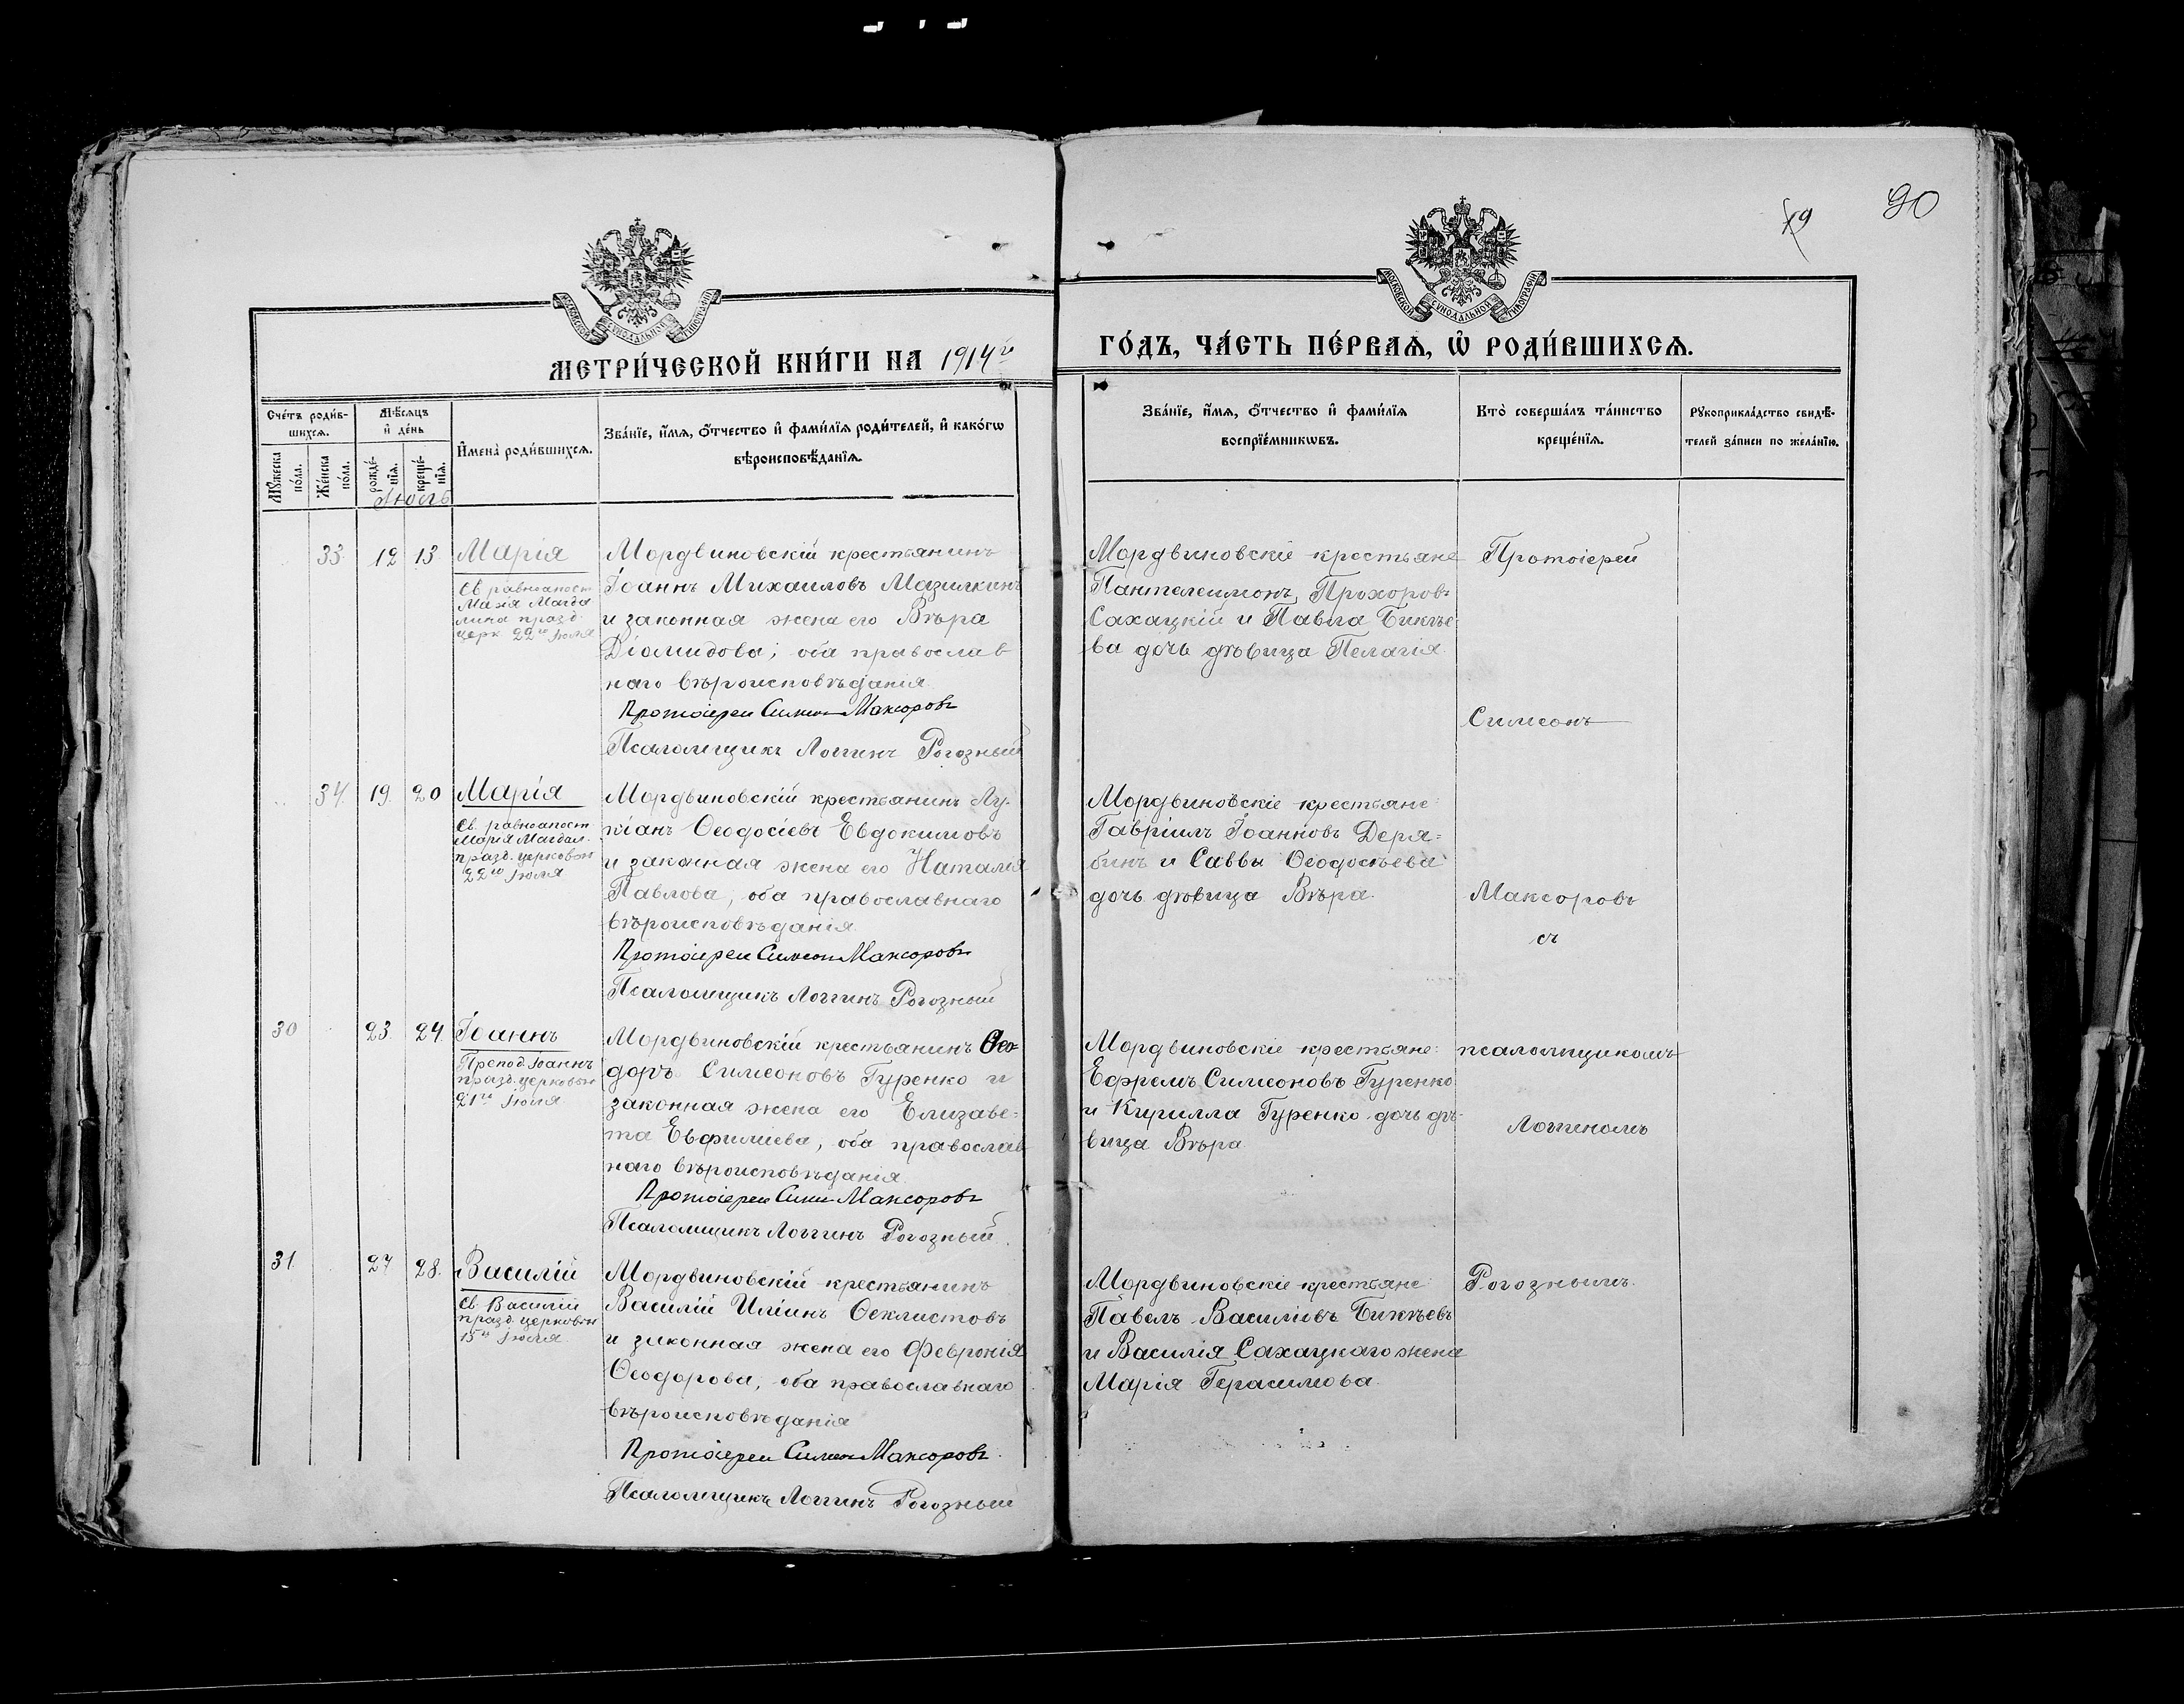 90
19
МОСКОВСКОЙ СѴНОДАЛЬНОЙ ТИПОГРАФІИ
МОСКОВСКОЙ СѴНОДАЛЬНОЙ ТИПОГРАФІИ
МЕТРИ́ЧЕСКОЙ КНИ́ГИ НА 1914й
ГО́ДЪ, ЧА́СТЬ ПЕ́РВАѦ, Ѡ РОДИ́ВШИХСѦ.
Счéтъ роди́в-
шихсѧ.
Мꙋжеска по́ла.
Же́нска по́ла.
Мѣ́сѧцъ
и҆ де́нь
рожде́-нїѧ.
креще́-нїѧ.
И҆мена̀ роди́вшихсѧ.
Зва́нїе, и҆́мѧ, ѻ҆́тчество и҆ фами́лїѧ роди́телей, и҆ како́гѡ
вѣроисповѣ́данїѧ.
Зва́нїе, и҆́мѧ, ѻ҆́тчество и҆ фами́лїѧ
воспрїе́мникѡвъ.
Кто̀ соверша́лъ та́инство
креще́нїѧ.
Рꙋкоприкла́дство свидѣ́-
телей за́писи по жела́нїю.
Іюль
33 12 13 Марія
Св. равноапост
Марія Магда
лина празд.
церк. 22го Іюля
Мордвиновскій крестьянинъ
Іоаннъ Михаиловъ Мазилкинъ
и законная жена его Вѣра
Діомидова; оба православ
наго вѣроисповѣданія
Протоіерей Симеон Максоровъ
Псаломщикъ Логгинъ Рогозный
Мордвиновскіе крестьяне
Пантелеимонъ Прохоровъ
Сахацкій и Павла Бикѣе
ва дочь дѣвица Пелагія.
Протоіерей
Симеонъ
34. 19. 20 Марія
Св. равноапост
Марія Магдал.
празд. церковн
22го Іюля
Мордвиновскій крестьянинъ Лу-
кіанъ Ѳеодосіевъ Евдокимовъ
и законная жена его Наталія
Павлова, оба православнаго
вѣроисповѣданія.
Протоіерей Симеон Максоровъ
Псаломщикъ Логгинъ Рогозный
Мордвиновскіе крестьяне:
Гавріилъ Іоанновъ Деря=
бинъ и Саввы Ѳеодосьева
дочь дѣвица Вѣра.
Максоровъ
съ
30 23. 24. Іоаннъ
Препод. Іоаннъ
празд. церковн
21го Іюля
Мордвиновскій крестьянинъ Ѳео=
доръ Симеоновъ Гуренко и
законная жена его Елизаве=
та Евфиміева, оба православ
наго вѣроисповѣданія.
Протоіерей Симеон Максоровъ
Псаломщикъ Логгинъ Рогозный.
Мордвиновскіе крестьяне:
Ефремъ Симеоновъ Гуренко
и Кирилла Гуренко дочь дѣ-
вица Вѣра
псаломщикомъ
Логгиномъ
31. 27 28. Василій
Св. Василій
празд. церковн
15го Іюля
Мордвиновскій крестьянинъ
Василій Иліинъ Ѳеклистовъ
и законная жена его Февронія
Ѳеодорова, оба православнаго
вѣроисповѣданія
Протоіерей Симеон Максоровъ.
Псаломщикъ Логгинъ Рогозный
Мордвиновскіе крестьяне
Павелъ Василіевъ Бикѣевъ
и Василія Сахацкаго жена
Марія Герасимова.
Рогознымъ.